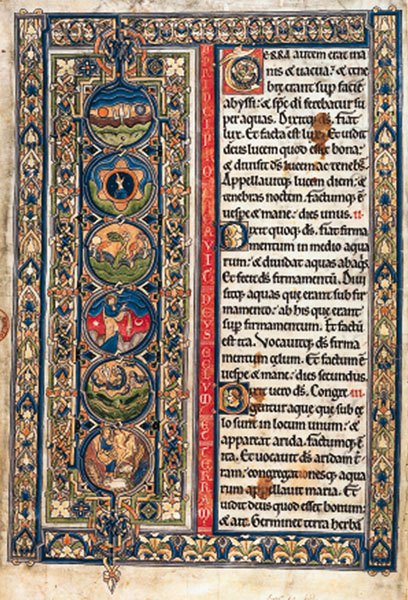 PRINCIPIO CREAVIT DEUS CELUM ET TERRAM
TERRA autem erat ina
nis & uacua: & tene
bre erant sup facie
abyssi: & sps di ferebatur su
per aquas. Dixitq; ds. fiat
lux. Et facta est lux. Et uidit
deus lucem quod esset bona:
& diuisit ds lucem ac tenebs.
Appellauitq; lucem diem: &
tenebras noctem. factumq; ē
uespe & mane: dies unus. ii
Dixit quoq; ds. fiat firma
mentum in medio aqua
rum: & diuidat aquas ab aqs.
Et fecit ds firmamentū. Diui
sitq; aquas que erant sub firma
mento. ab his que erant
sup firmamentum. Et factū
est ita. Vocauitq; ds. firma
mentum celum. Et factum ē
uespe & mane. dies secundus.
Dixit uero ds. Congre iii
gentur aque que sub ce
lo sunt in locum unum: &
appareat arida. factumq; ē
ita. Et uocauit ds aridam t
ram. congregationesq; aqua
rum appellauit maria. Et
uidit deus quod esset bonum:
& ait. Germinet terra herba